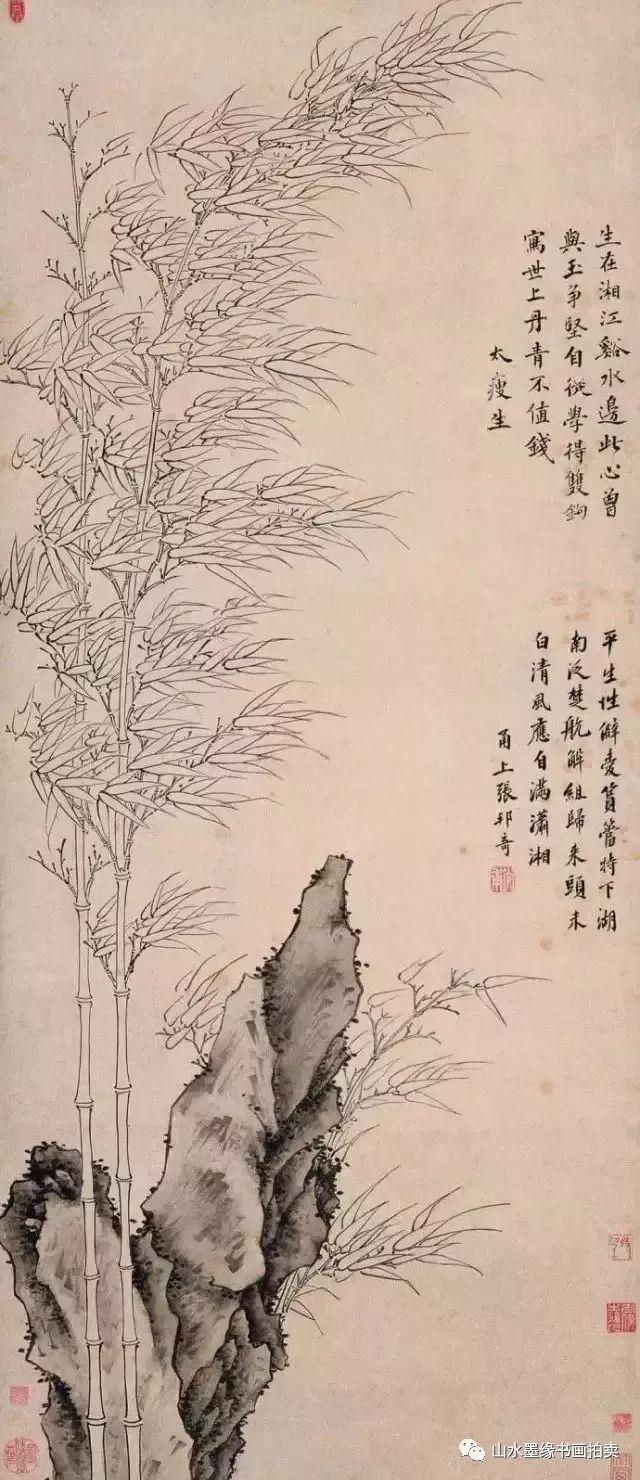 生在湘江谿水邊此心曾
與玉爭堅自從學得雙鉤
寫世上丹青不值錢
太瘦生
平生性僻愛篔簹特下湖
南泛楚航解組歸來頭未
白清風應自滿瀟湘
甬上張邦奇
山水墨缘书画拍卖